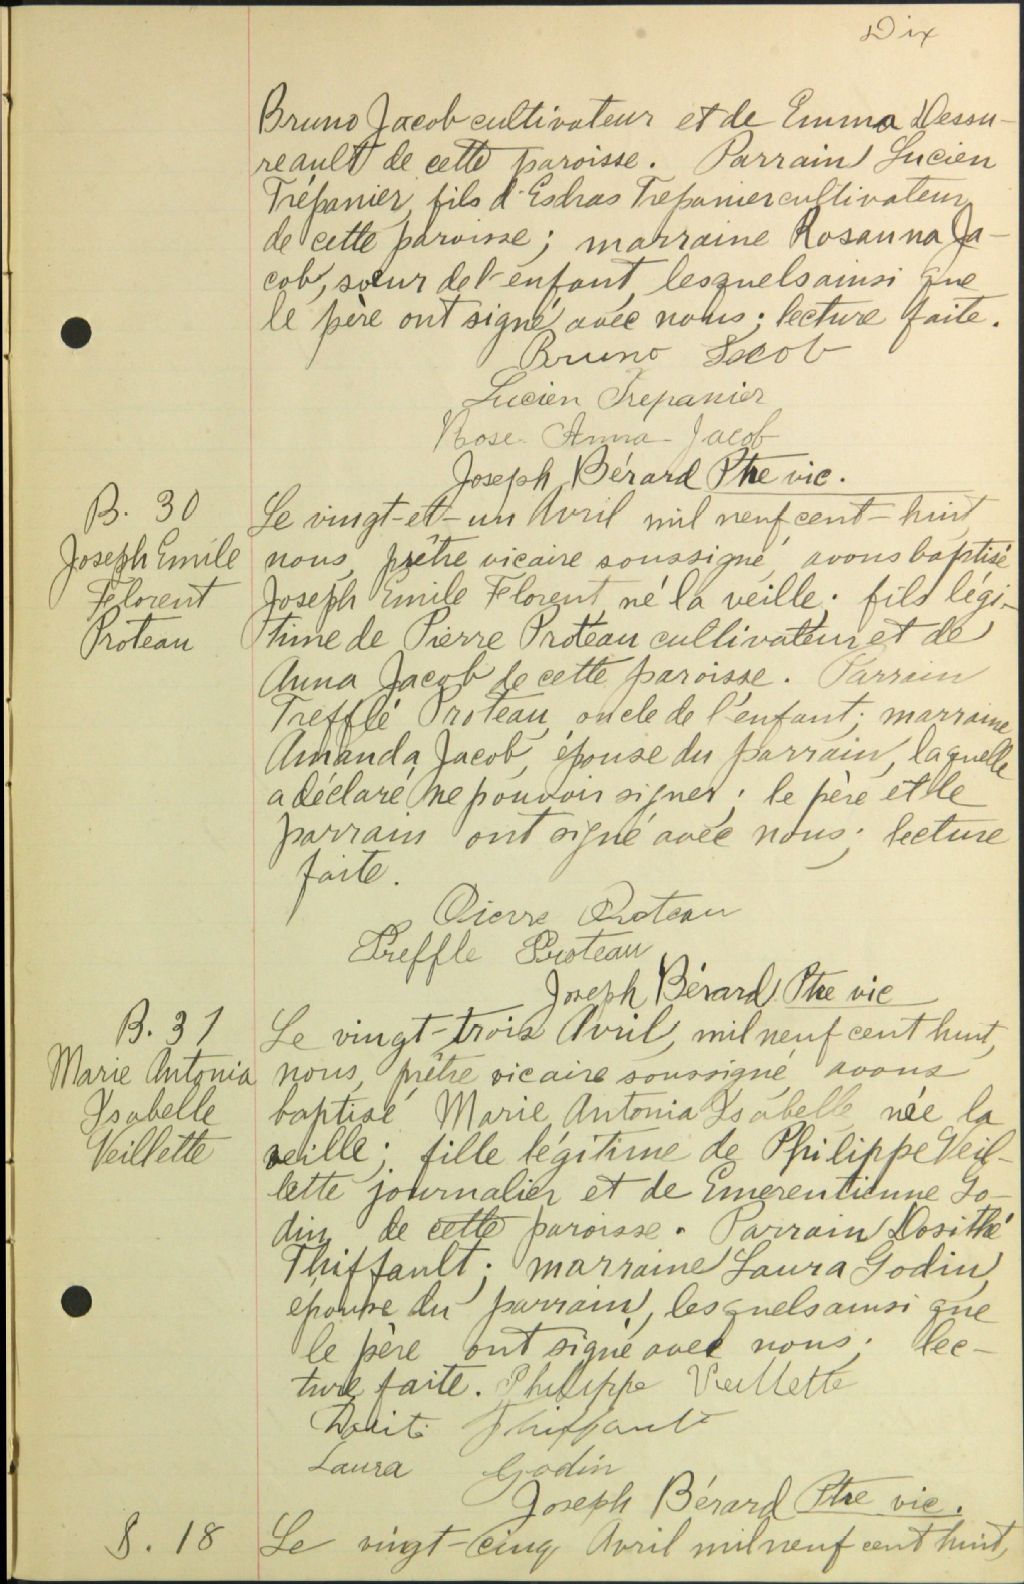 Dix
Bruno Jacob cultivateur et de Emma Dessu-
reault de cette paroisse. Parrain Lucien
Trépanier, fils d'Esdras Trepanier cultivateur
de cette paroisse; marraine Rosanna Ja-
cob, sœur de l'enfant, lesquels ainsi que
le père ont signé avec nous; lecture faite.
Bruno Jacob
Lucien Trepanier
Rose-Anna Jacob
Joseph Bérard Ptre vic.
B. 30
Joseph Emile
Florent
Proteau
Le vingt-et-un Avril mil neuf cent-huit
nous, prêtre vicaire soussigné, avons baptisé
Joseph Emile Florent, né la veille; fils légi-
time de Pierre Proteau cultivateur et de
Anna Jacob de cette paroisse. Parrain
Trefflé Proteau, oncle de l'enfant; marraine
Amanda Jacob, épouse du parrain, laquelle
a déclaré ne pouvoir signer; le père et le
parrain ont signé avec nous; lecture
faite.
Pierre Proteau
Treffle Proteau
Joseph Bérard Ptre vic
B. 31
Marie Antonia
Isabelle
Veillette
Le vingt-trois Avril, mil neuf cent huit,
nous, prêtre vicaire soussigné, avons
baptisé Marie Antonia Isabelle née la
veille; fille légitime de Philippe Veil-
lette journalier et de Emerentienne Go-
din de cette paroisse. Parrain Dosithé
Thiffault; marraine Laura Godin,
épouse du parrain, lesquels ainsi que
le père ont signé avec nous; lec-
ture faite. Philippe Veillette
Dosité Thiffault
Laura Godin
Joseph Bérard Ptre vic.
S. 18
Le vingt-cinq Avril mil neuf cent huit,